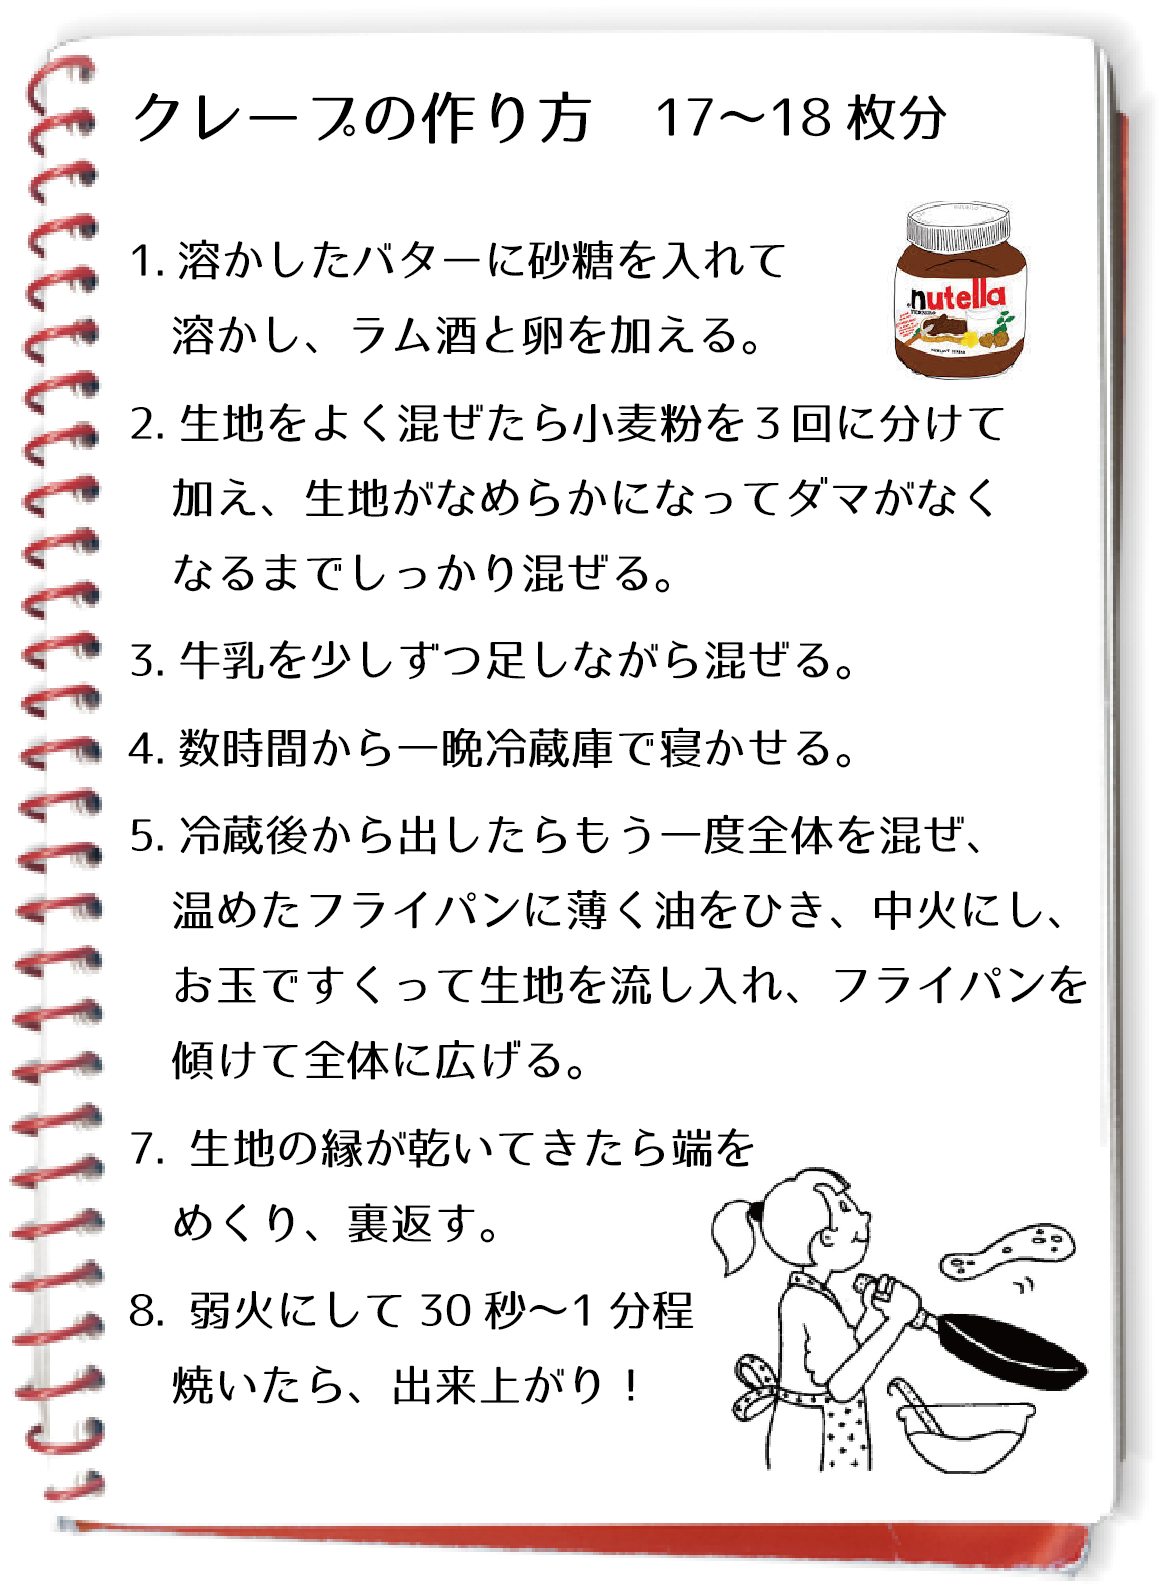 クレープの作り方　17〜18 枚分
1. 溶かしたバターに砂糖を入れて
溶かし、ラム酒と卵を加える。
nutella
2. 生地をよく混ぜたら小麦粉を３回に分けて
加え、生地がなめらかになってダマがなく
なるまでしっかり混ぜる。
3. 牛乳を少しずつ足しながら混ぜる。
4. 数時間から一晩冷蔵庫で寝かせる。
5. 冷蔵後から出したらもう一度全体を混ぜ、
温めたフライパンに薄く油をひき、中火にし、
お玉ですくって生地を流し入れ、フライパンを
傾けて全体に広げる。
7. 生地の縁が乾いてきたら端を
めくり、裏返す。
8. 弱火にして 30 秒〜1 分程
焼いたら、出来上がり！